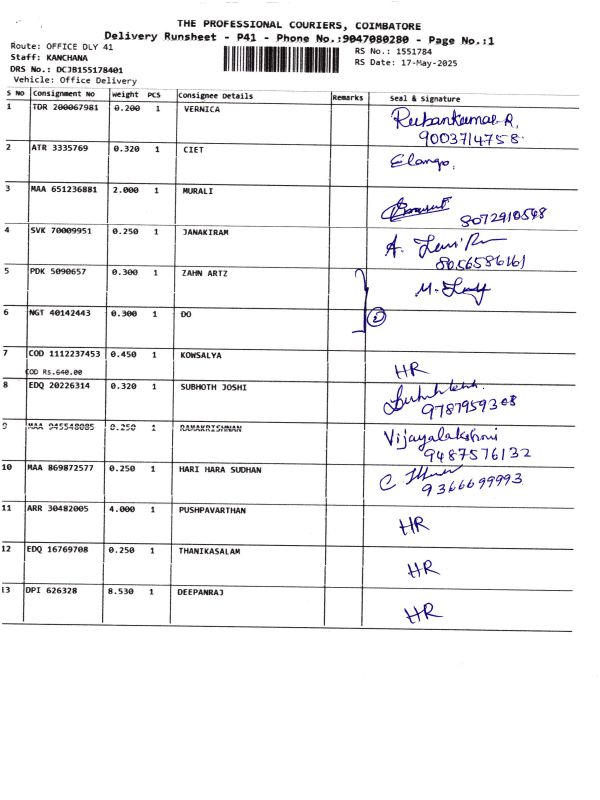 THE PROFESSIONAL COURIERS, COIMBATORE
Delivery Runsheet - P41 - Phone No.:9047080280 - Page No.:1
Route: OFFICE DLY 41
RS No.: 1551784
Staff: KANCHANA
RS Date: 17-May-2025
DRS No.: DCJB155178401
Vehicle: Office Delivery
S NO Consignment No Weight PCS Consignee Details Remarks Seal & Signature
1 TDR 200067981 0.200 1 VERNICA Rubankumar R.
9003714758
2 ATR 3335769 0.320 1 CIET Elango.
3 MAA 651236881 2.000 1 MURALI
8072910548
4 SVK 70009951 0.250 1 JANAKIRAM A.
8056586161
5 PDK 5090657 0.300 1 ZAHN ARTZ M.
6 NGT 40142443 0.300 1 DO 2
7 COD 1112237453 0.450 1 KOWSALYA HR
COD Rs.640.00
8 EDQ 20226314 0.320 1 SUBHOTH JOSHI
9787959308
9 MAA 945548085 0.250 1 RAMAKRISHNAN Vijayalakshmi
9487576132
10 MAA 869872577 0.250 1 HARI HARA SUDHAN C
9366699993
11 ARR 30482005 4.000 1 PUSHPAVARTHAN HR
12 EDQ 16769708 0.250 1 THANIKASALAM HR
13 DPI 626328 8.530 1 DEEPANRAJ HR